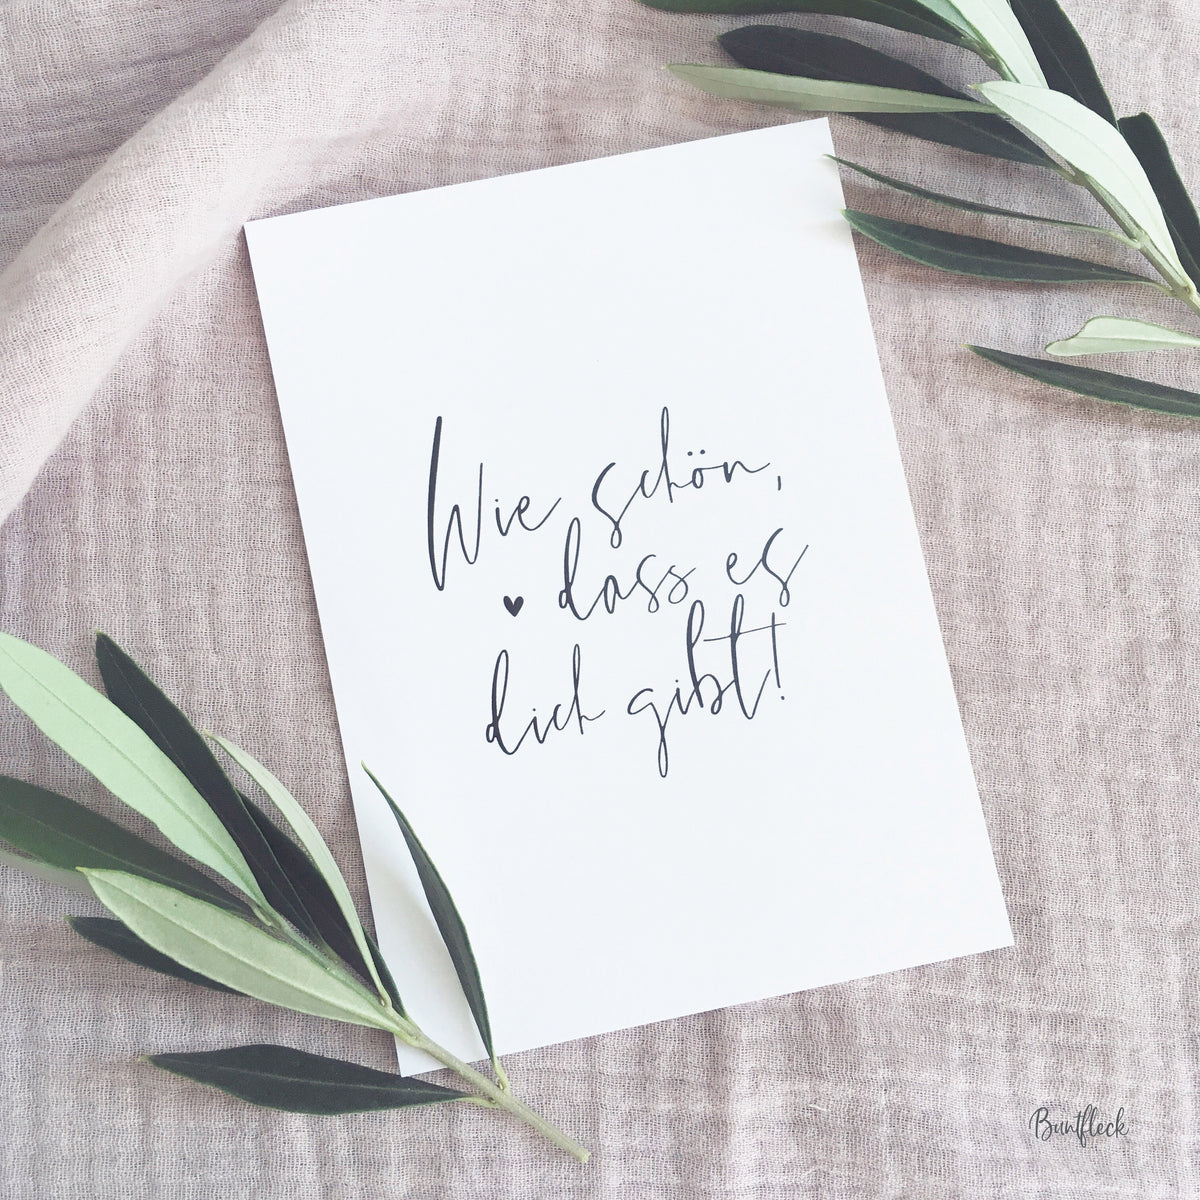 Wie schön,
♥ dass es
dich gibt!
Buntfleck